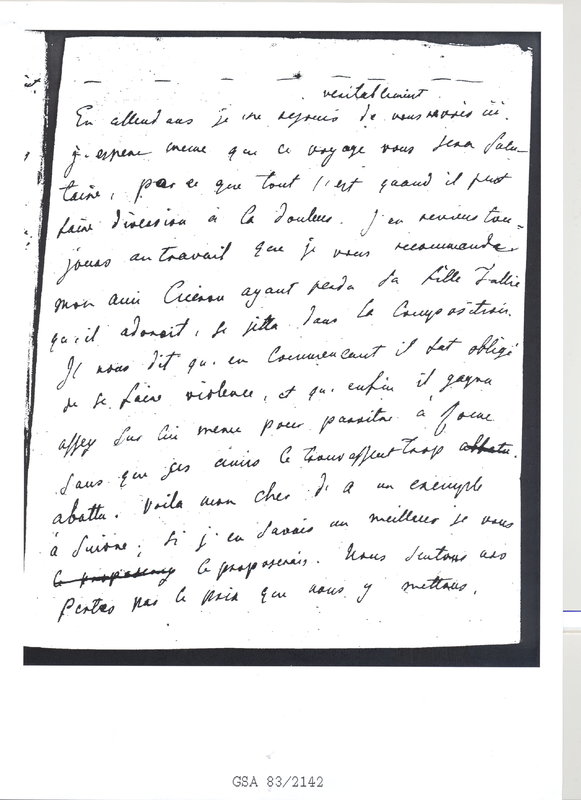 veritablement
En attendant je me rejouis de vous revoir ici.
j'espere meme que ce voyage vous sera salu-
taire, parce que tout l'est quand il peut
faire diversion à la douleur. J'en reviens tou=
jours au travail que je vous recommande
mon ami Ciceron ayant perdu sa fille Tullie
qu'il adoroit, se jetta dans la Composition.
Il nous dit qu'en commencant il fut obligé
de se faire violence, et qu'enfin il gagna
assez sur lui meme pour paroitre à
sans que ses amis le trouvassent trop abbatu.
abattu. Voila mon cher d'A un exemple
à suivre; si j'en savais un meilleur je vous
le proposerais. Nous sentons nos
pertes par le prix que nous y mettons.
GSA 83/2142